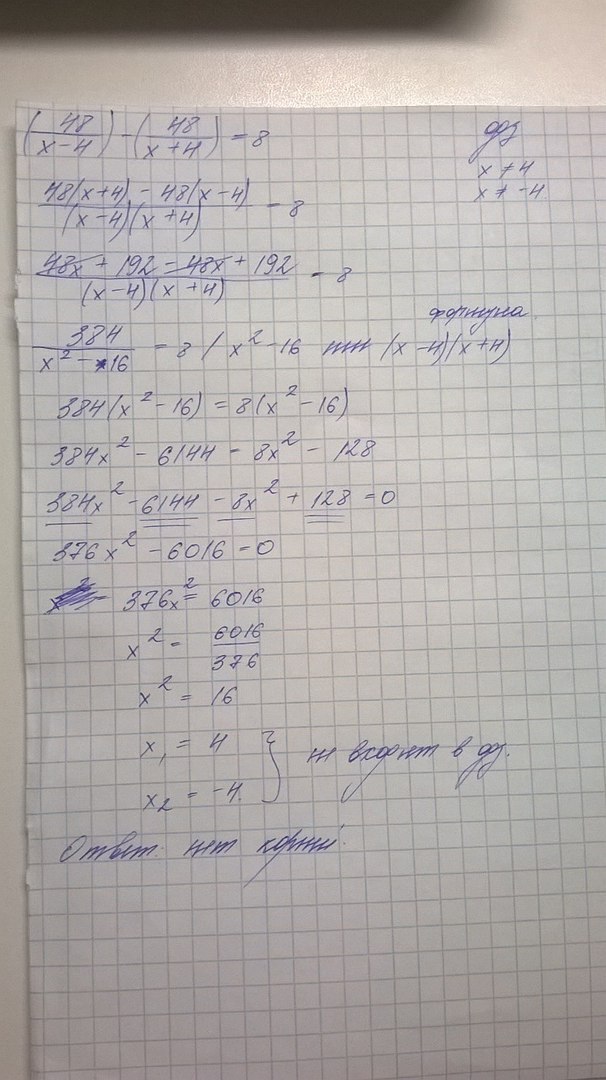 (48/(x-4)) - (48/(x+4)) = 8
одз
x ≠ 4
x ≠ -4
(48(x+4) - 48(x-4))/((x-4)(x+4)) = 8
(48x + 192 - 48x + 192)/((x-4)(x+4)) = 8
формула
384/(x² - 16) = 8 / x² - 16 (x-4)(x+4)
384(x² - 16) = 8(x² - 16)
384x² - 6144 = 8x² - 128
384x² - 6144 - 8x² + 128 = 0
376x² - 6016 = 0
376x² = 6016
x² = 6016/376
x² = 16
x₁ = 4
x₂ = -4
} не входят в одз.
Ответ: нет корней.